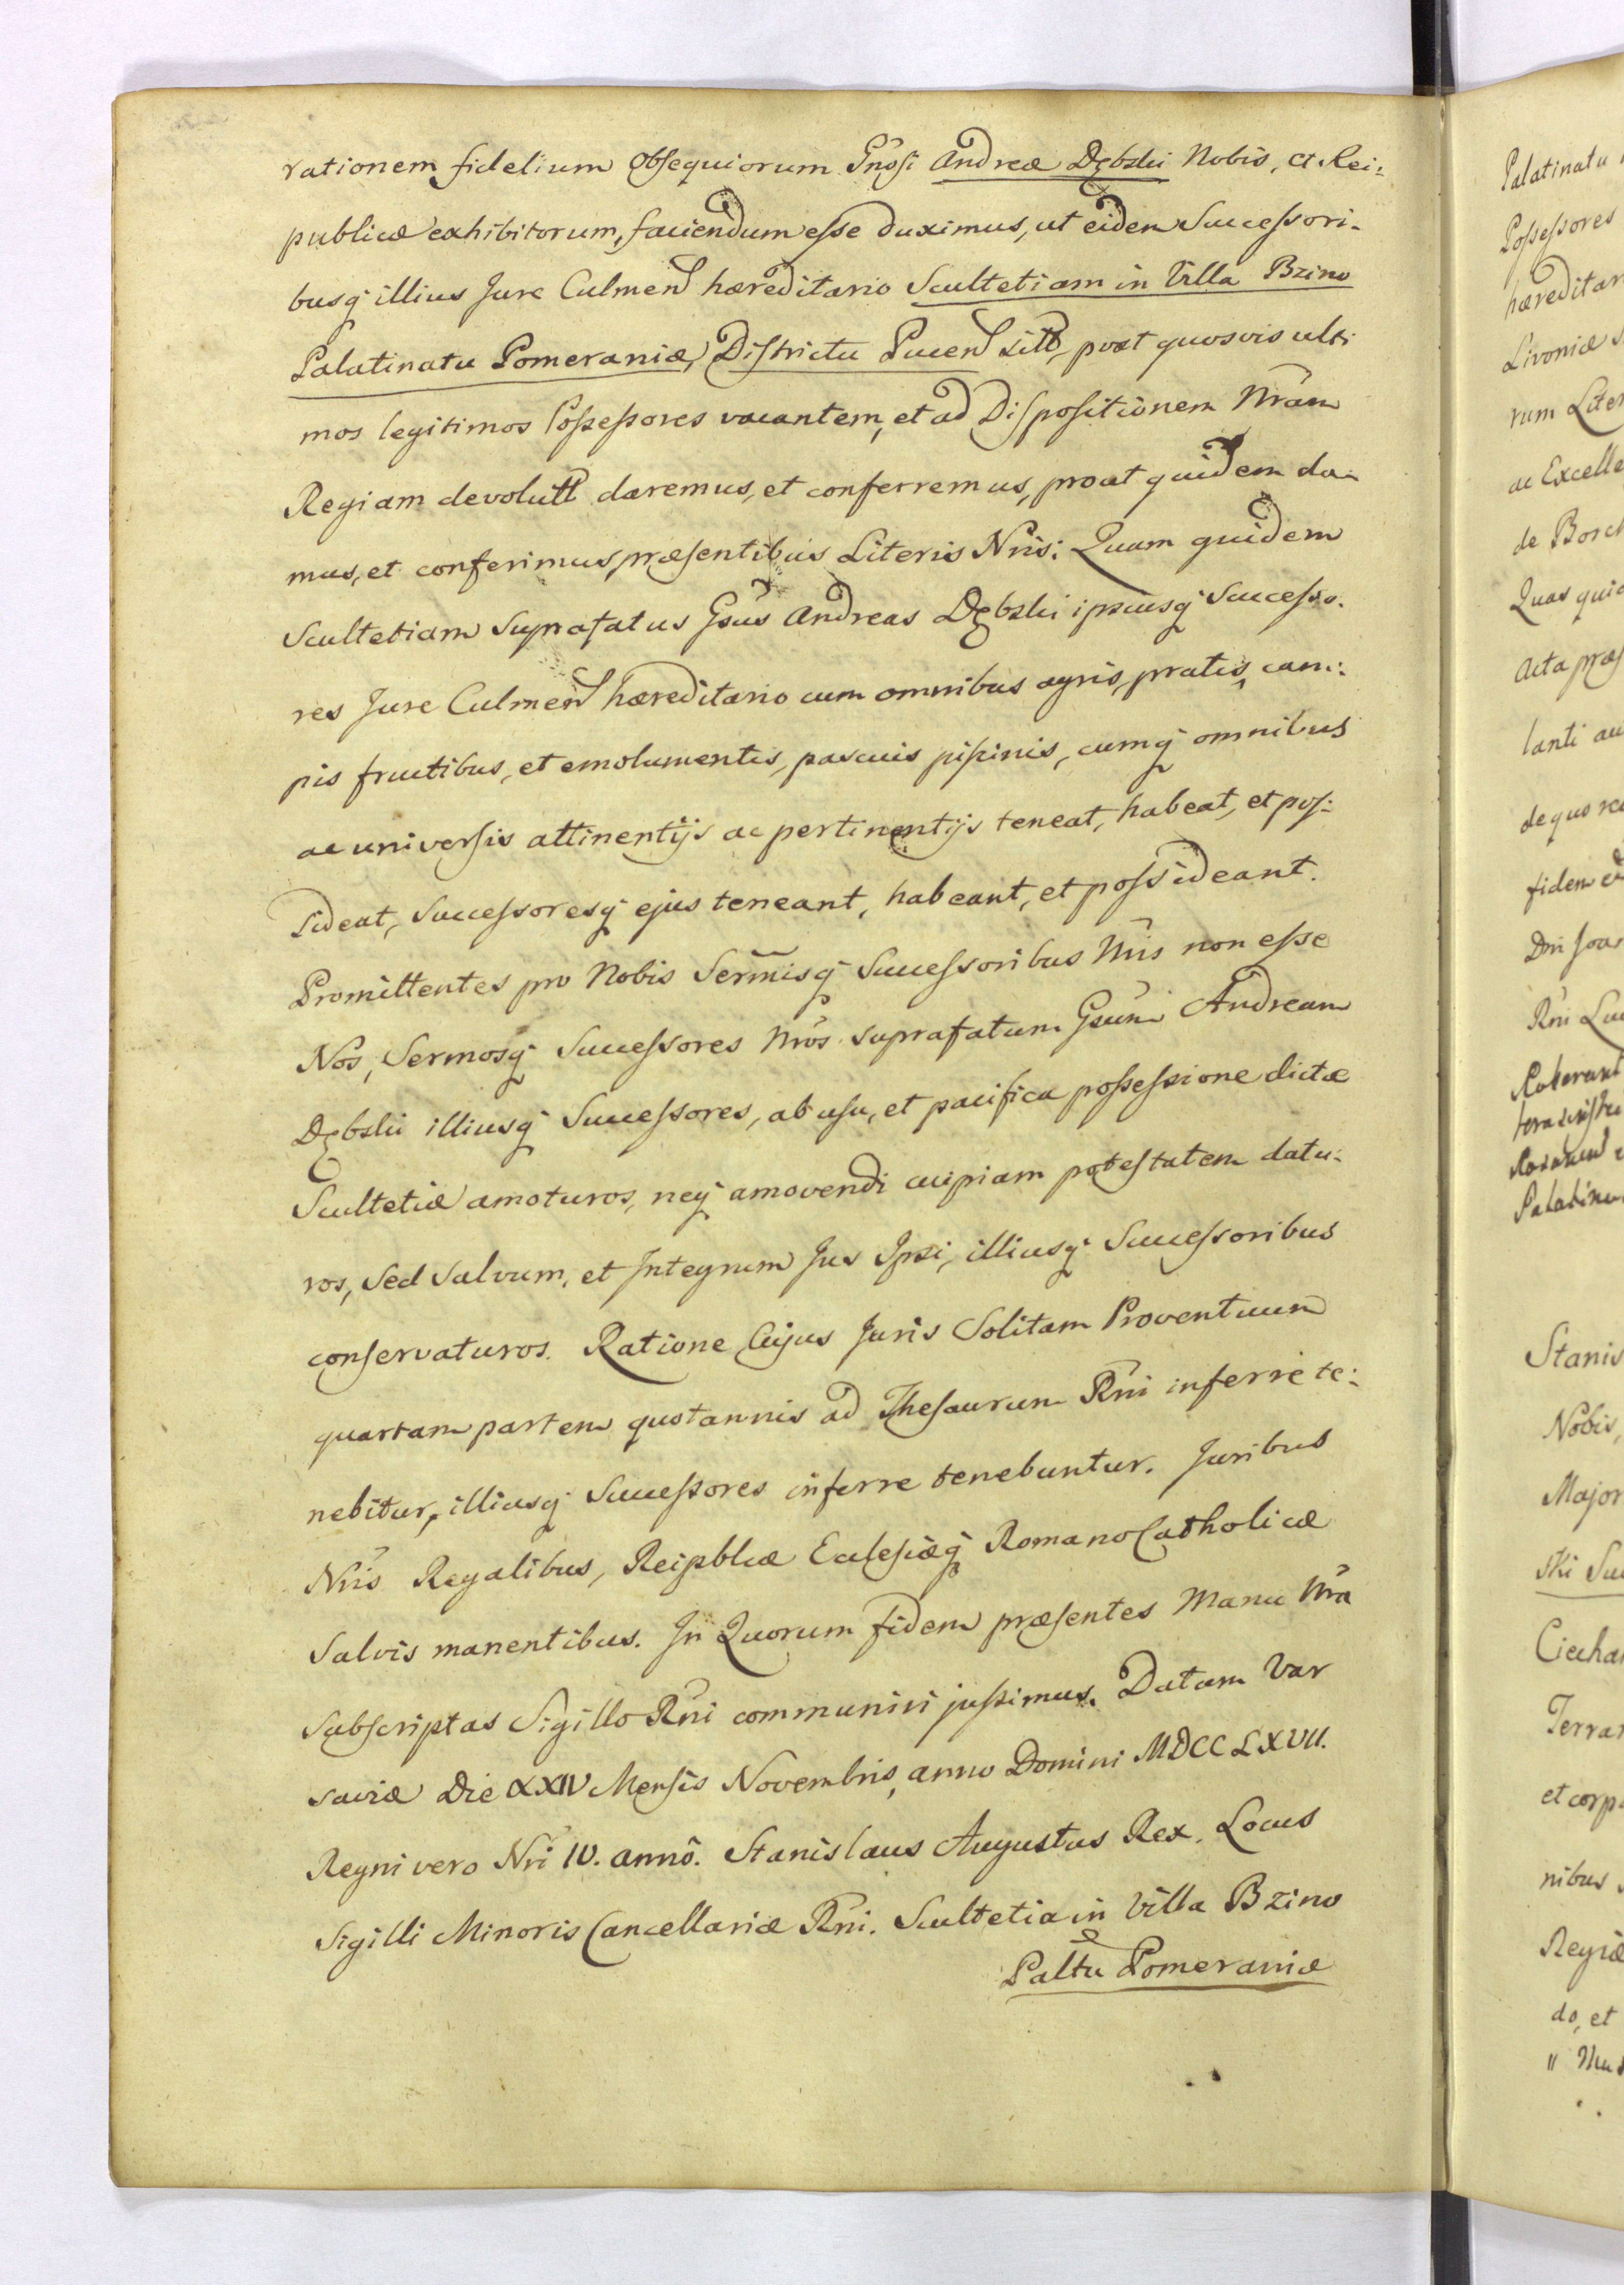 rationem fidelium obsequiorum Gnosi Andreæ Dębski Nobis, et Rei:
publicæ exhibitorum, faciendum esse duximus, ut eidem Successori-
busq̃ illius Jure Culmen hæreditario Scultetiam in Villa Bzino
Palatinatu Pomeraniæ, Districtu Pucen sitt, post quosvis ulti
mos legitimos Possessores vacantem, et ad Dispositionem Nram
Regiam devolutt daremus, et conferremus, prout quidem da-
mus, et conferimus præsentibus Literis Nris: Quam quidem
Scultetiam Suprafatus Gsus Andreas Dębski ipsiusq̃ Successo-
res Jure Culmen hæreditario cum omnibus agris, pratis, cam:
pis fructibus, et emolumentis, pascuis pissinis, cumq̃ omnibus
ac universis attinentijs ac pertinentijs teneat, habeat, et pos:
sideat, Successoresq̃ ejus teneant, habeant, et possideant.
Promittentes pro Nobis Sermisq̃ Successoribus Nris non esse
Nos, Sermosq̃ Successores Nros suprafatum Gsum Andream
Dębski illiusq̃ Successores, ab usu, et pacifica possessione dictæ
Scultetiæ amoturos, neq̃ amovendi cuipiam potestatem datu-
ros, Sed Salvum, et Integrum Jus Ipsi, illiusq̃ Successoribus
conservaturos. Ratione Cujus Juris Solitam Proventuum
quartam partem quotannis ad Thesaurum Rni inferre te:
nebitur, illiusq̃ Successores inferre tenebuntur. Juribus
Nris Regalibus, Reipblicæ Eclesiæq̃ Romano Catholicæ
Salvis manentibus. In Quorum fidem præsentes Manu Nra
Subscriptas Sigillo Rni communiri jussimus. Datum Var
saviæ Die XXIV Mensis Novembris, anno Domini MDCCLXVII.
Regni vero Nri IV. anno. Stanislaus Augustus Rex. Locus
Sigilli Minoris Cancellariæ Rni. Scultetia in Villa Bzino
Paltu Pomeraniæ
Palatinatu
Possessores
hæreditar
Livoniæ
rum Liter
ac Excelle
de Borch
Quas quid
Acta præs
lanti au
de quo re
fidem
Rni Lu
Palatinu
Stanis
Nobis,
Major
ski Su
Ciechan
Terrar
et corpo
nibus
Regiæ
do, et